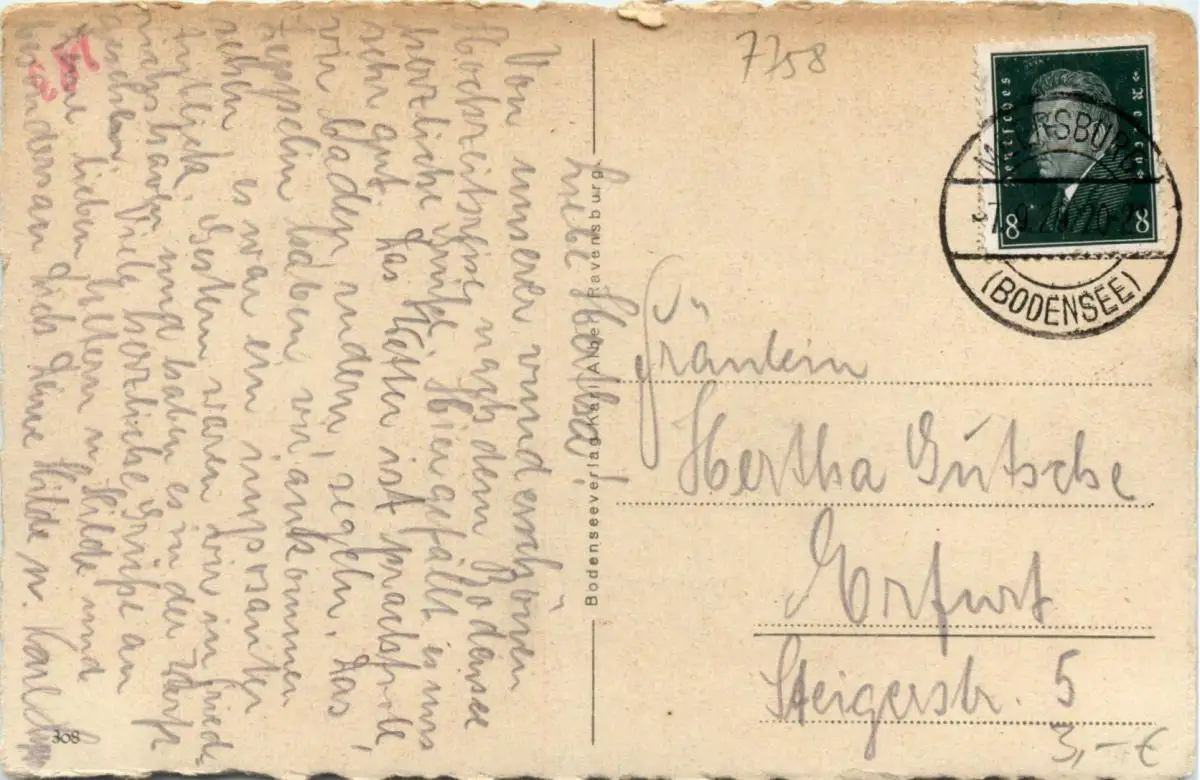 Liebe Hertha!
Von unserer wunderschönen
Hochzeitsreise nach dem Bodensee
herzliche Grüße. Hier gefällt es uns
sehr gut. Das Wetter ist prachtvoll,
wir baden, rudern, segeln. Das
Zeppelin haben wir ankommen
sehen, es war ein imposanter
Anblick. Gestern waren wir in Friedr.
haven und haben es in der Werft
gesehen. Viele herzliche Grüße an
Deine lieben Eltern u. Hilde und
besonders an Dich Deine Hilde u. Karl
308
Bodenseeverlag Karl Alber, Ravensburg.
7758
8 8
MEERSBURG
20-2
(BODENSEE)
Fräulein
Hertha Gutsche
Erfurt
Steigerstr. 5
3,- €